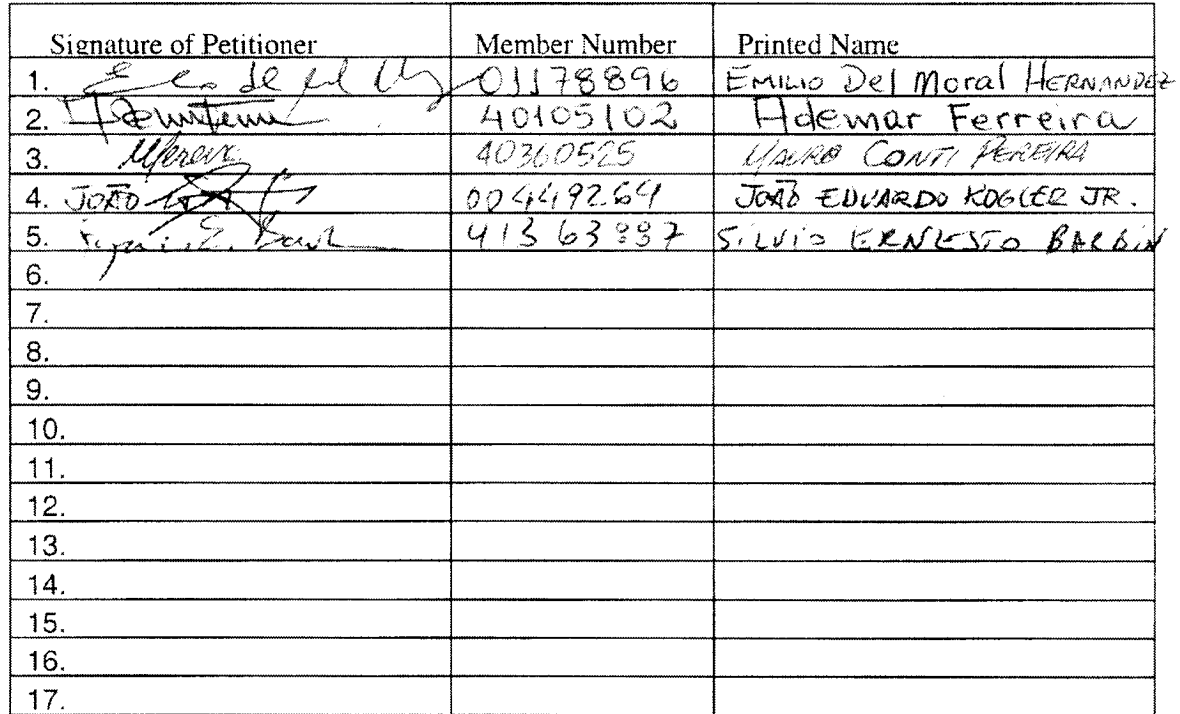 Signature of Petitioner Member Number Printed Name
1. 01178896 EMILIO Del Moral HERNANDEZ
2. 40105102 Ademar Ferreira
3. 40360525 MAURO CONTI PEREIRA
4. JOÃO 00449264 JOÃO EDUARDO KOGLER JR.
5. SILVIO ERNESTO BARBIN
6.
7.
8.
9.
10.
11.
12.
13.
14.
15.
16.
17.